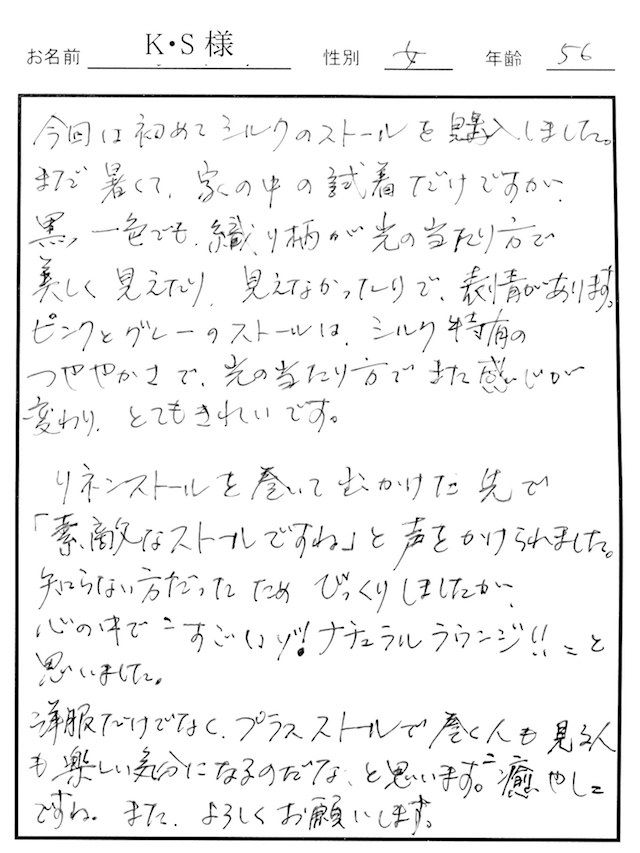 お名前 K・S様 性別 女 年齢 56
今回は初めてシルクのストールを購入しました。
まだ暑くて、家の中の試着だけですが、
黒、一色でも、織り柄が光の当たり方で
美しく見えたり、見えなかったりで、表情があります。
ピンクとグレーのストールは、シルク特有の
つややかさで、光の当たり方でまた感じが
変わり、とてもきれいです。
リネンストールを巻いて出かけた先で
「素敵なストールですね」と声をかけられました。
知らない方だったためびっくりしましたが、
心の中で〝すごいゾ!ナチュラルラウンジ!!〟と
思いました。
洋服だけでなく、プラスストールで巻く人も見る人
も楽しい気分になるのだな、と思います。〝癒やし〟
ですね。また、よろしくお願いします。